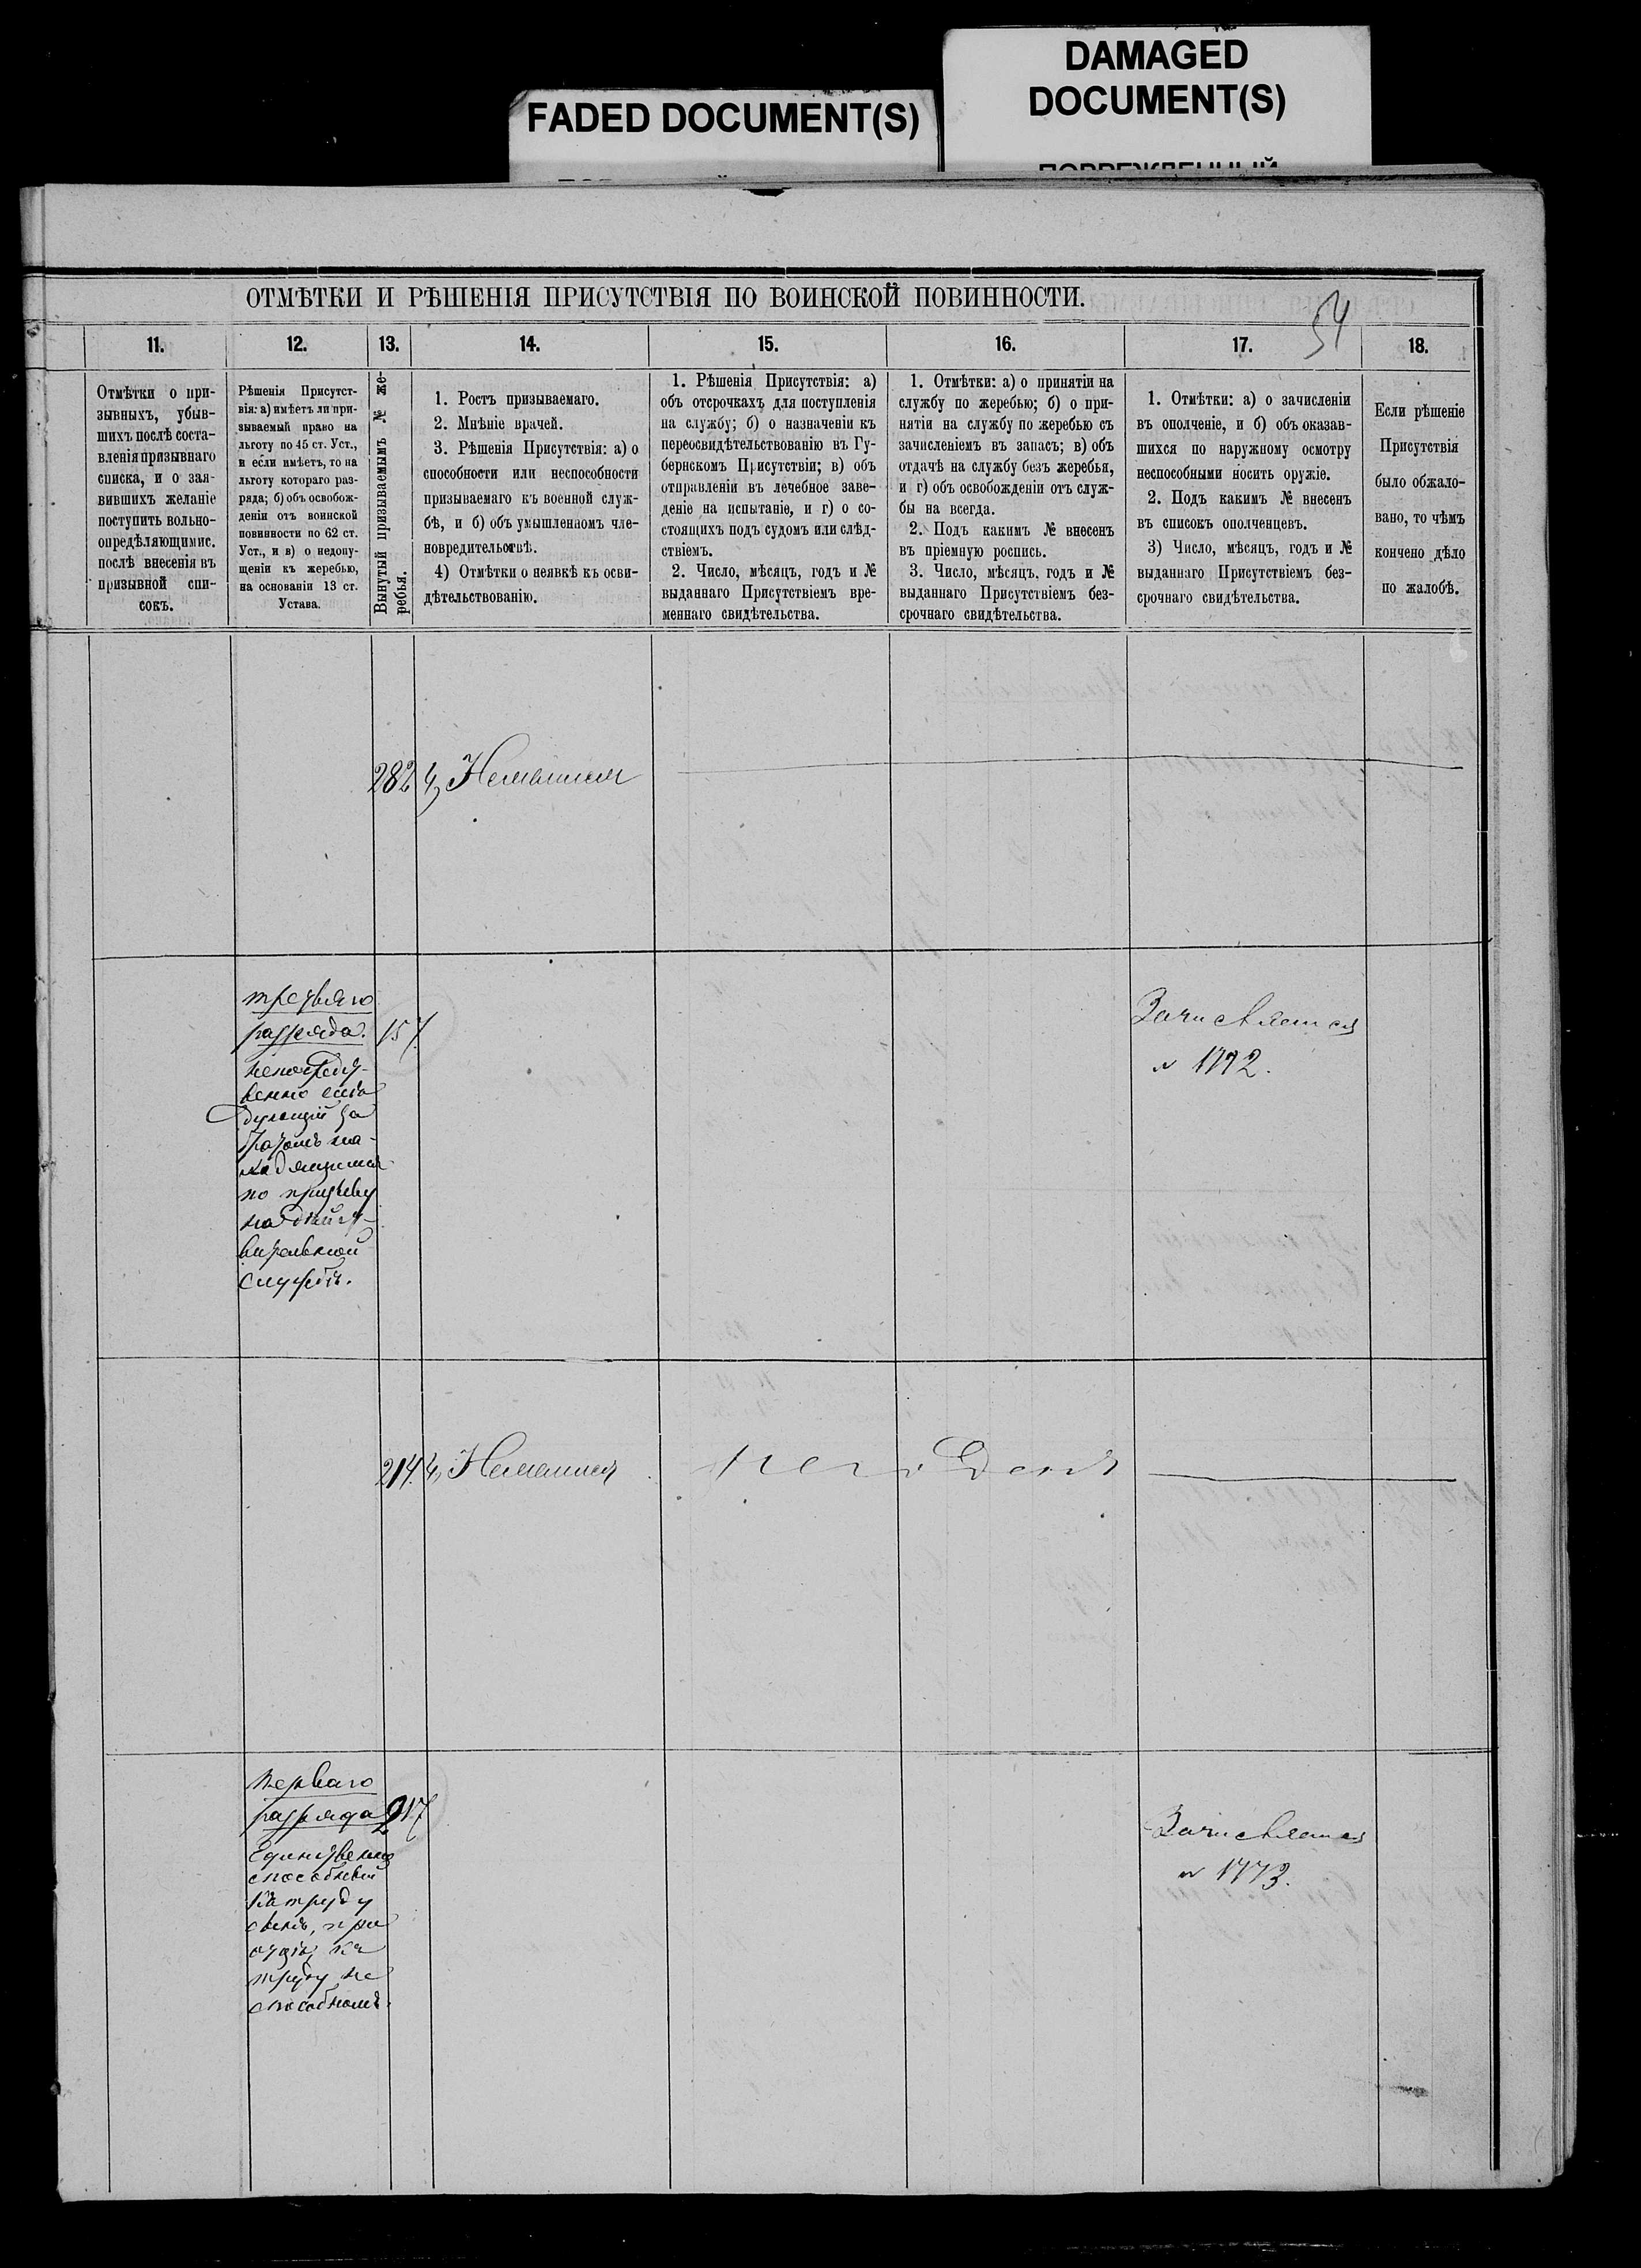 DAMAGED
DOCUMENT(S)
FADED DOCUMENT(S)
ОТМѢТКИ И РѢШЕНІЯ ПРИСУТСТВІЯ ПО ВОИНСКОЙ ПОВИННОСТИ.
54
11.
12.
13.
14.
15.
16.
17.
18.
Отмѣтки о при-
зывныхъ, убыв-
шихъ послѣ соста-
вленія призывнаго
списка, и о зая-
вившихъ желаніе
поступить вольно-
опредѣляющимис.
послѣ внесенія въ
призывной спи-
сокъ.
Рѣшенія Присутст-
вія: а) имѣетъ ли при-
зываемый право на
льготу по 45 ст. Уст.,
и если имѣетъ, то на
льготу котораго раз-
ряда; б) объ освобож-
деніи отъ воинской
повинности по 62 ст.
Уст., и в) о недопу-
щеніи къ жеребью,
на основаніи 13 ст.
Устава.
Вынутый призываемымъ № же-
ребья.
1. Ростъ призываемаго.
2. Мнѣніе врачей.
3. Рѣшенія Присутствія: а) о
способности или неспособности
призываемаго къ военной служ-
бѣ, и б) объ умышленномъ чле-
новредительствѣ.
4) Отмѣтки о неявкѣ къ осви-
дѣтельствованію.
1. Рѣшенія Присутствія: а)
объ отсрочкахъ для поступленія
на службу; б) о назначеніи къ
переосвидѣтельствованію въ Гу-
бернскомъ Присутствіи; в) объ
отправленіи въ лечебное заве-
деніе на испытаніе, и г) о со-
стоящихъ подъ судомъ или слѣд-
ствіемъ.
2. Число, мѣсяцъ, годъ и №
выданнаго Присутствіемъ вре-
меннаго свидѣтельства.
1. Отмѣтки: а) о принятіи на
службу по жеребью; б) о при-
нятіи на службу по жеребью съ
зачисленіемъ въ запасъ; в) объ
отдачѣ на службу безъ жеребья,
и г) объ освобожденіи отъ служ-
бы на всегда.
2. Подъ какимъ № внесенъ
въ пріемную роспись.
3. Число, мѣсяцъ, годъ и №
выданнаго Присутствіемъ без-
срочнаго свидѣтельства.
1. Отмѣтки: а) о зачисленіи
въ ополченіе, и б) объ оказав-
шихся по наружному осмотру
неспособными носить оружіе.
2. Подъ какимъ № внесенъ
въ списокъ ополченцевъ.
3) Число, мѣсяцъ, годъ и №
выданнаго Присутствіемъ без-
срочнаго свидѣтельства.
Если рѣшеніе
Присутствія
было обжало-
вано, то чѣмъ
кончено дѣло
по жалобѣ.
282
4,
третьяго
разряда.
непосредст-
венно слѣ
дующій за
братомъ на-
ходящимся
по призыву
на дѣйст-
вительной
службѣ.
157
Зачисляется
№ 1772.
214
4,
перваго
разряда
Единственно
способный
къ труду
сынъ, при
отцѣ, къ
труду не
способномъ.
217
Зачисляется
№ 1773.